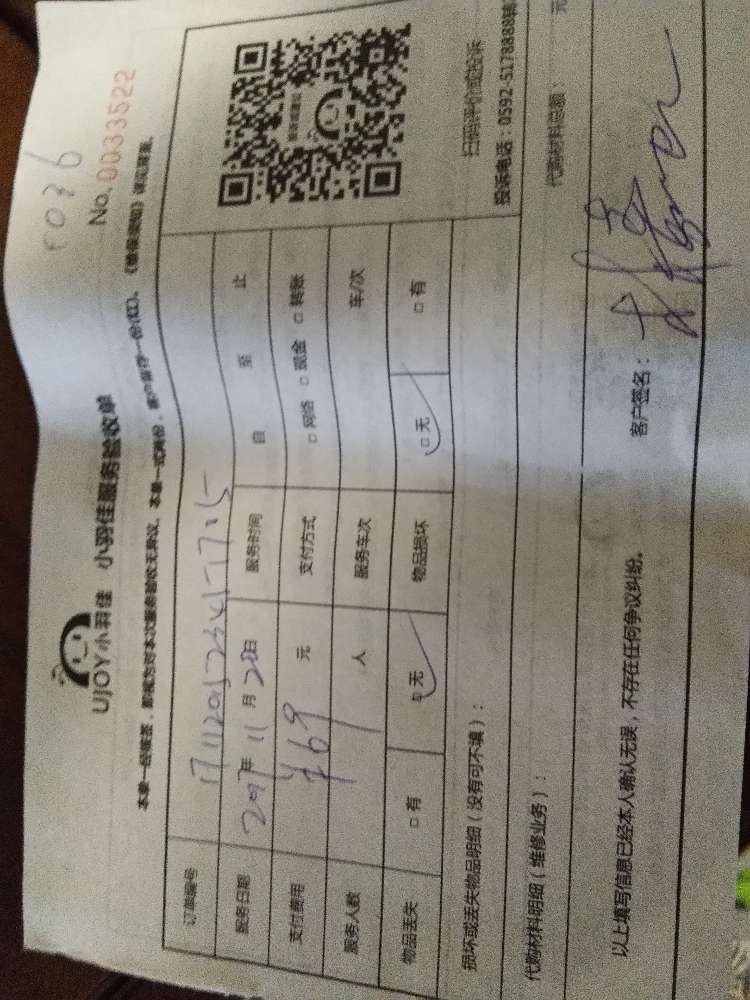 UJOY小羽佳 小羽佳服务验收单
No. 0033522
本单一经签签，即视为对本次服务验收无异议。本单一式两份，客户留存一份(红)。《维保须知》详见背面。
订单编号
服务日期 2017年 11月 28日 服务时间 自 至 止
支付费用 ¥69 元 支付方式 □ 网络 □ 现金 □ 转账
服务人数 人 服务车次 车/次
物品丢失 □ 有 □ 无 物品损坏 □ 无 □ 有
损坏或丢失物品明细（没有可不填）：
扫码评价或投诉
投诉电话：0592-5178888转
代购材料明细（维修业务）：
代购材料总额： 元
以上填写信息已经本人确认无误，不存在任何争议纠纷。
客户签名：